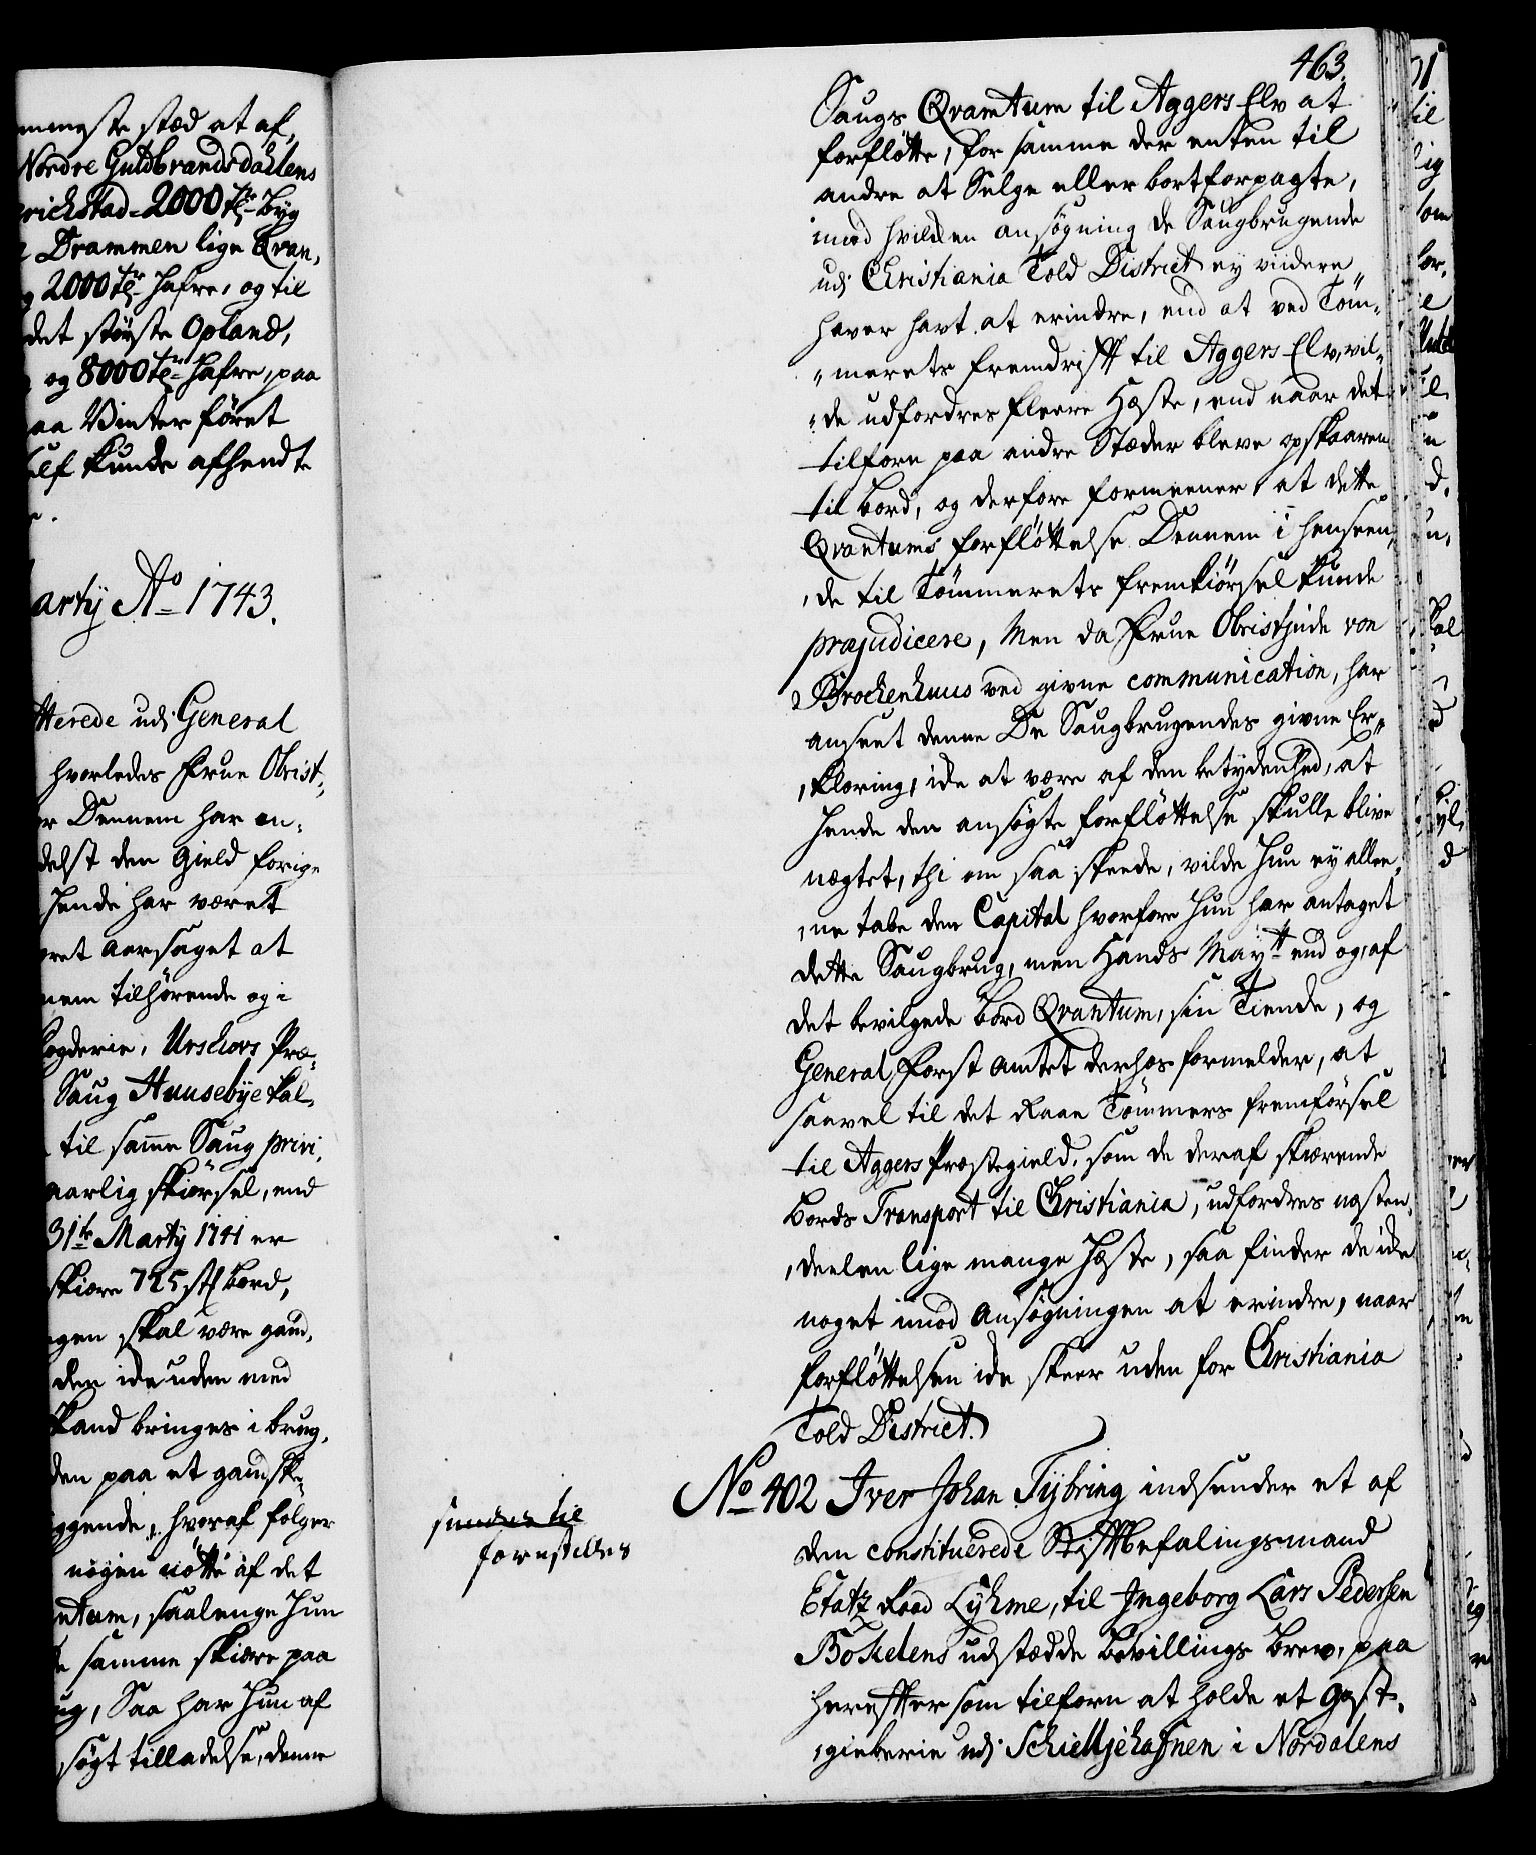 mmgste stæd at af,
Nordre Guldbrandsdahlens
rickstad 2000 tr byg
Drammen lige Qvan,
2000 tr hafre, og til
det störste Opland,
og 8000 tr hafre, paa
aa Vinter föret
self kunde afhendte
arty Ao 1743.
tterede udj General
hvorledes Frue Obrist,
er Dennem har an,
delst den Gield forige
Hende har været
ret aarsaget at
nem tilhörende og i
ogderie, Urschovs Præ,
Saug Huusebye kal,
til samme Saug privi,
aarlig skiørsel, end
31te Marty 1741 er
skiære 725 st bord,
gen skal være gand,
den icke uden med
kand bringes i brug,
den paa et gandske
ggende, hvoraf følger
nogen nötte af det
ntum, saalenge hun
samme skiære paa
ug, Saa har Hun af
søgt tilladelse, denne
463.
Saugs Qvantum til Aggers Elv at
forflötte, for samme der enten til
andre at Selge eller bortforpagte,
imod hvilcken ansøgning de Saugbrugende
udj Christiania Told District ey viidere
haver havt at erindre, end at ved Töm„
„merets fremdrift til Aggers Elv, vil„
„de udfordres fleere Heste, end naar det
tilforn paa andre Stæder bleve opskaaren
til bord, og derfore formeener, at dette
Qvantums forflöttelse Dennem i henseen,
,de til Tömmerets fremkiörsel kunde
præjudicere, Men da Frue Obristinde von
Brockenhuus ved givne communication, har
anseet denne De Saugbrugendes givne Er„
,klæring, icke at være af den betydenhed, at
Hende den ansøgte forflöttelse skulle blive
nægtet, thi om saa skeede, vilde Hun ey allee,
,ne tabe den Capital hvorfore Hun har antaget
dette Saugbrug, men Hands Maytt end og, af
det bevilgede bord Qvantum, sin Tiende, og
General Forst Amtet derhos formelder, at
saavel til det Raae Tömmers fremførsel
til Aggers Præstegield, som de deraf skiærende
bords Transport til Christiania, udfordres næsten,
,deelen lige mange Heste, saa finder de icke
noget imod Ansøgningen at erindre, naar
forflöttelsen icke skeer uden for Christiania
Told District.
sendes til
forestilles
No 402 Iver Johan Tybring indsender et af
den constituerede Stiftbefalingsmand
Etatz Raad Lyhme, til Ingeborg Lars Pedersen
Bokelens udstædde Bevillings brev, paa
herefter som tilforn at holde et gæst,
,gieberie udj Schieltjehafnen i Nordalens